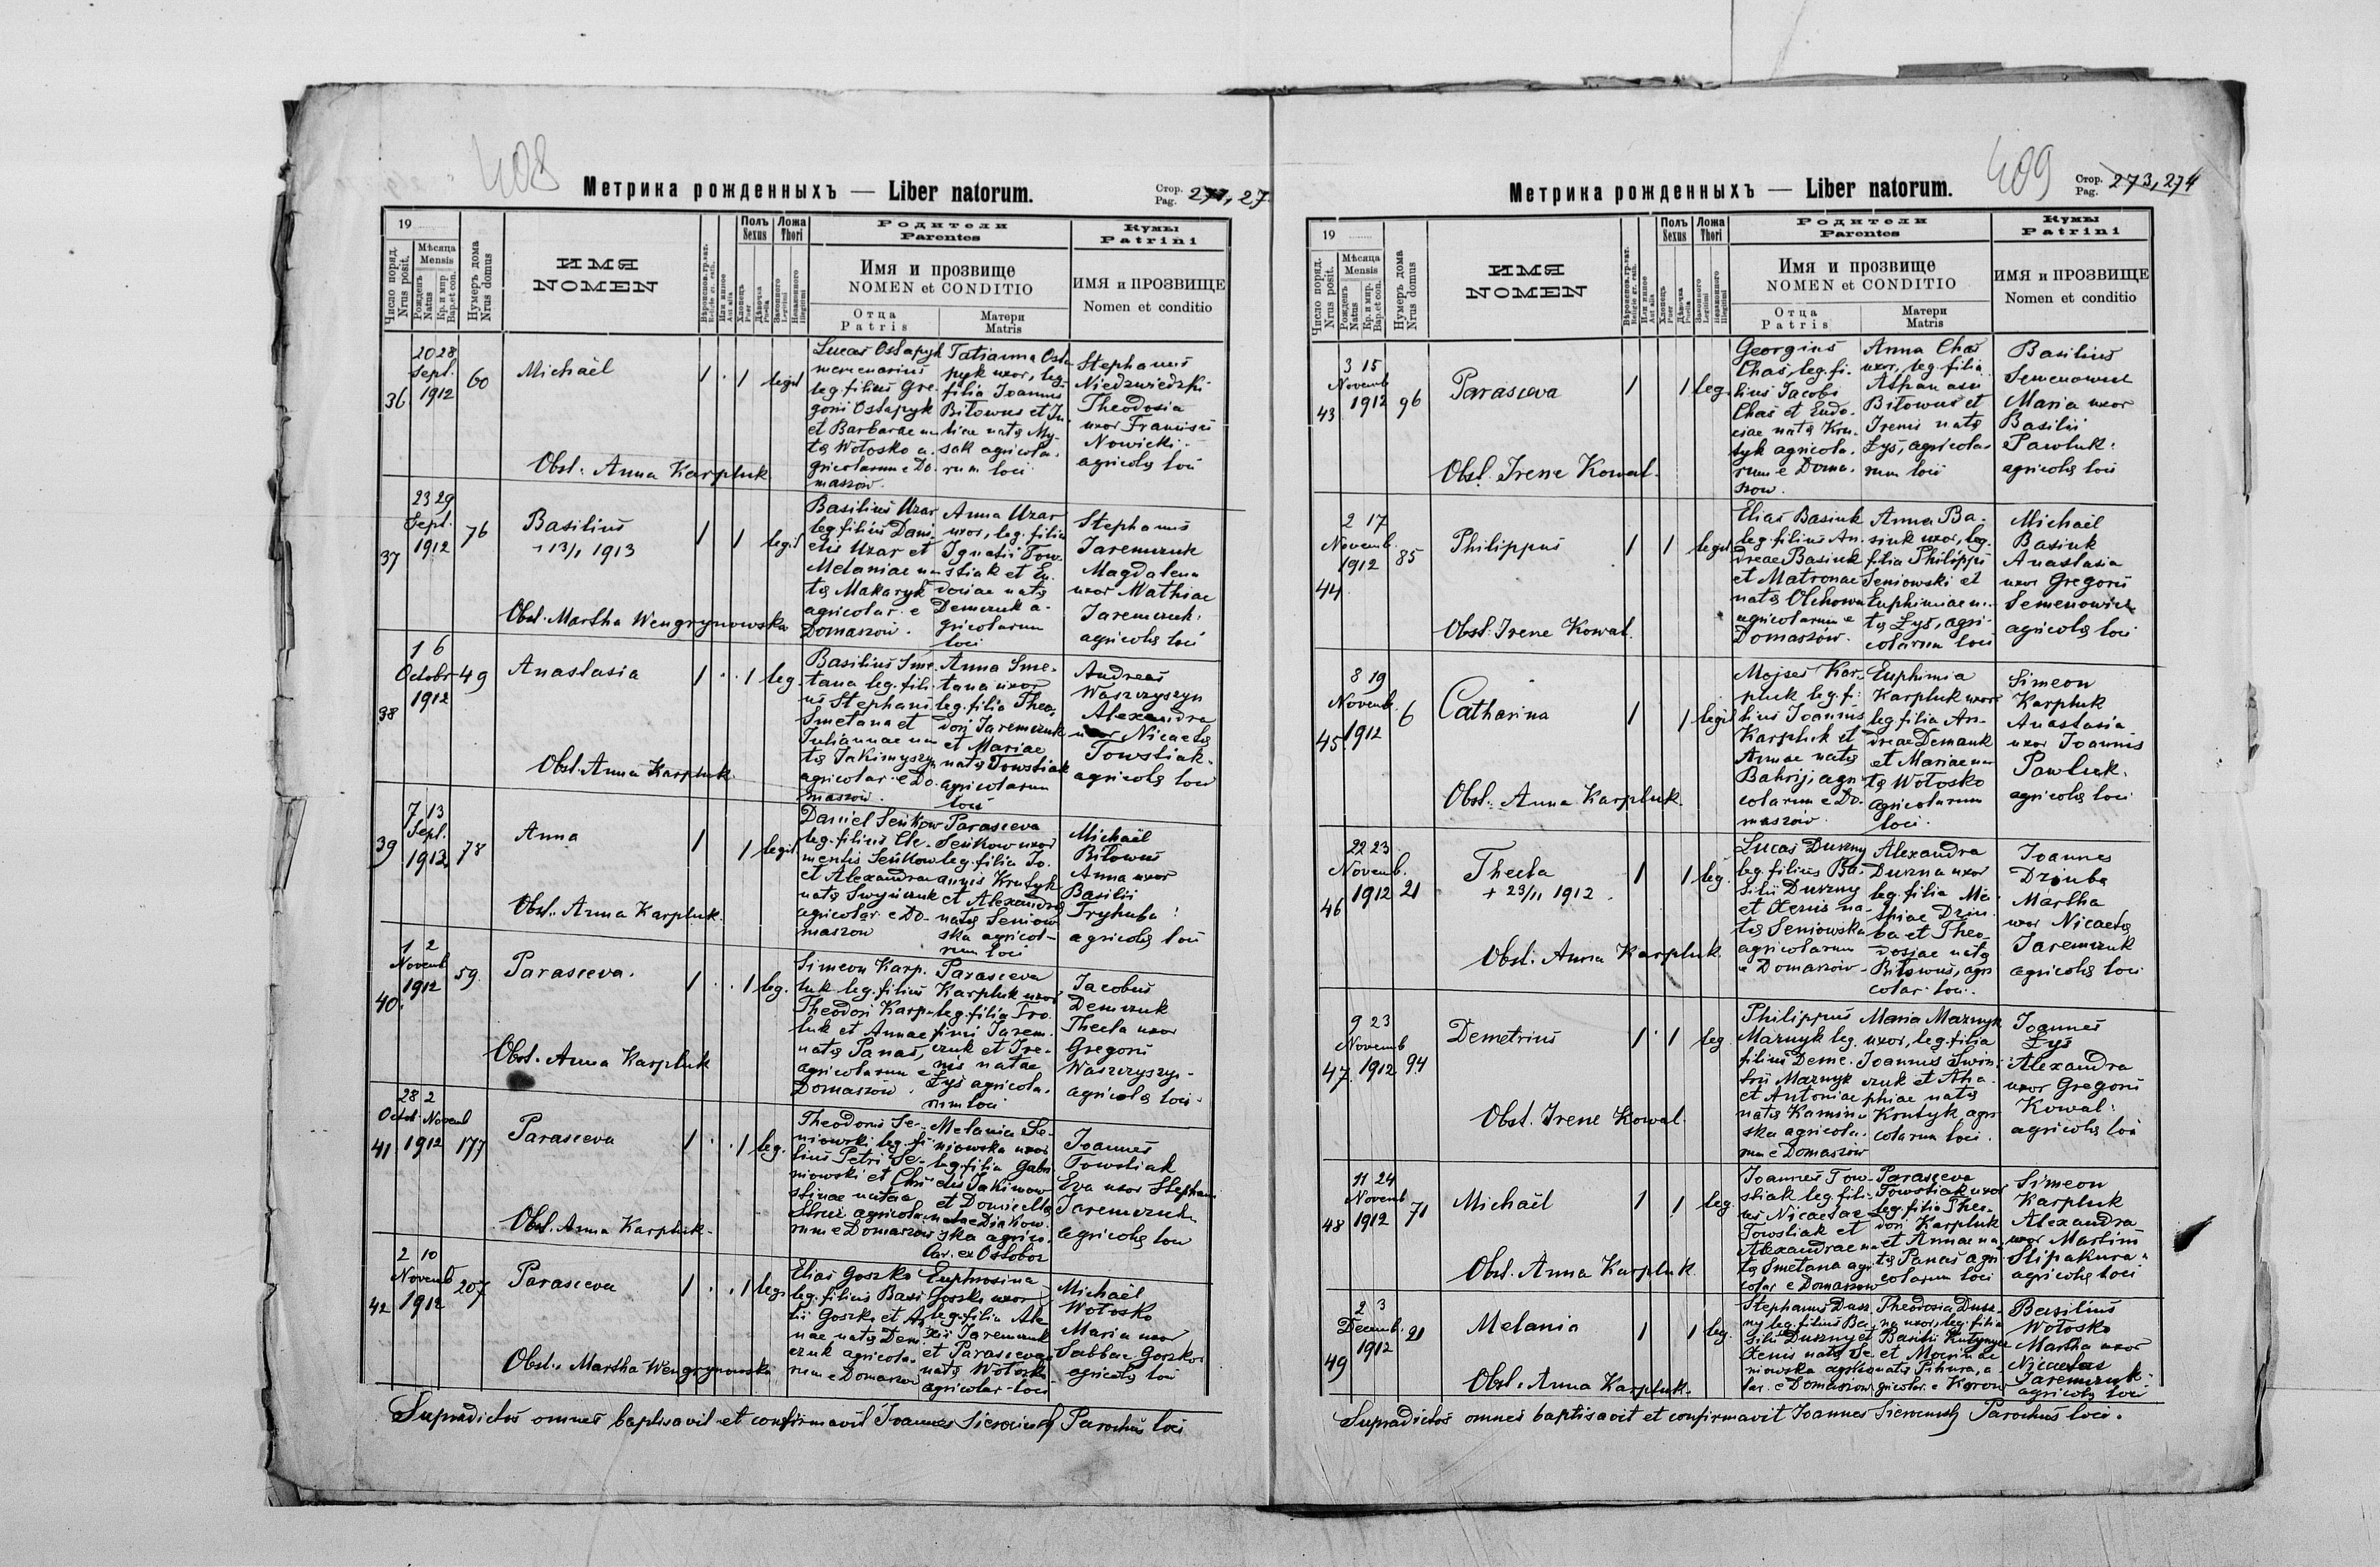 408
Метрика рожденныхъ — Liber natorum.
Стор.
Pag. 271, 27
19
Число поряд.
Nrus posit.
Мѣсяца
Mensis
Рожденъ
Natus
Кр. и мир
Bap. et con.
Нумеръ дома
Nrus domus
ИМЯ
NOMEN
Полъ
Sexus
Ложа
Thori
Родители
Parentes
Имя и прозвище
NOMEN et CONDITIO
Отца
Patris
Матери
Matris
Кумы
Patrini
ИМЯ и ПРОЗВИЩЕ
Nomen et conditio
36
20 28
Sept.
1912
60
Michaël
1 . 1 legit
Obst. Anna Karpluk
Lucas Ostapyk
mercenarius
leg. filius Gre-
gorii Ostapyk
et Barbarae na-
tę Wołosko a-
gricolarum e Do-
maszów.
Tatianna Osta-
pyk uxor, leg.
filia Joannis
Biłowus et Ju-
liae natę My-
sak agricola-
rum loci
Stephanus
Niedzwiedzki
Theodosia
uxor Francisci
Nowicki
agricolę loci
37
23 29
Sept.
1912
76
Basilius
+ 13/1 1913
1 1 legit
Obst. Martha Wengrynowska
Basilius Uzar
leg. filius Dani-
elis Uzar et
Melaniae na-
tę Makaryk
agricolar. e
Domaszów.
Anna Uzar
uxor, leg. filia
Ignatii Tow-
stiak et Eu-
dociae natę
Demczuk a-
gricolarum
loci
Stephanus
Jaremczuk
Magdalena
uxor Mathiae
Jaremczuk
agricolę loci
38
1 6
Octobr
1912
49
Anastasia
1 . . 1 leg.
Obst. Anna Karpluk
Basilius Sme-
tana leg. fili-
us Stephani
Smetana et
Juliannae na-
tę Jakimyszyn
agricolar. e Do-
maszów.
Anna Sme-
tana uxor
leg. filia Theo-
dori Jaremczuk
et Mariae
natę Towstiak
agricolarum
loci
Andreas
Waszczyszyn
Alexandra
uxor Nicaetę
Towstiak
agricolę loci
39
7 13
Sept.
1912
78
Anna
1 1 legit
Obst. Anna Karpluk
Daniel Seńkow
leg. filius Cle-
mentis Seńkow
et Alexandrae
natę Swyńczuk
agricolar. e Do-
maszow
Parasceva
Seńkow uxor
leg. filia Jo-
annis Krutyk
et Alexandrę
natę Seniow-
ska agricola-
rum loci
Michaël
Biłowus
Anna uxor
Basilii
Tryhuba
agricolę loci
40.
1 2
Novemb
1912
59.
Parasceva.
1 . . 1 leg.
Obst. Anna Karpluk
Simeon Karp-
luk leg. filius
Theodori Karp-
luk et Annae
natę Panas,
agricolarum e
Domaszów.
Parasceva
Karpluk uxor
leg. filia Tro-
fimi Jarem-
czuk et Ire-
nis natae
Łyś agricola-
rum loci
Jacobus
Demczuk
Thecla uxor
Gregorii
Waszczyszyn
agricolę loci
41
28 2
Octob. Novemb
1912
177
Parasceva
1 . . 1 leg.
Obst. Anna Karpluk
Theodorus Se-
niowski leg. fi-
lius Petri Se-
niowski et Chri-
stinae natae
agricola-
rum e Domaszów
Melania Se-
niowska uxor
leg. filia Gabri-
elis Jakimow
et Domicellę
natae Diakow-
ska agrico-
lar. ex Ostobor
Joannes
Towstiak
Eva uxor Stephani
Jaremczuk
agricolę loci
42
2 10
Novemb
1912
207
Parasceva
1 . . 1 leg.
Obst. Martha Wengrynowska
Elias Goszko
leg. filius Basi-
lii Goszko et An-
nae natę Dem-
czuk agricola-
rum e Domaszow
Euphrosina
Goszko uxor
leg. filia Ale-
xii Jaremczuk
et Parascevae
natę Wołosko
agricolar. loci
Michaël
Wołosko
Maria uxor
Sabbae Goszko
agricolę loci
Supradictos omnes baptisavit et confirmavit Joannes Sierocinskij Parochus loci
409
Метрика рожденныхъ — Liber natorum.
Стор.
Pag. 273, 274
19
Число поряд.
Nrus posit.
Мѣсяца
Mensis
Рожденъ
Natus
Кр. и мир.
Bap. et con.
Нумеръ дома
Nrus domus
ИМЯ
NOMEN
Полъ
Sexus
Ложа
Thori
Родители
Parentes
Имя и прозвище
NOMEN et CONDITIO
Отца
Patris
Матери
Matris
Кумы
Patrini
ИМЯ и ПРОЗВИЩЕ
Nomen et conditio
43
3 15
Novemb
1912
96
Parasceva
1 1 leg.
Obst. Irene Kowal.
Georgius
Chas, leg. fi-
lius Jacobi
Chas et Eudo-
ciae natę Kru-
tyk agricola-
rum e Doma-
szow.
Anna Chas
uxor, leg. filia
Athanasii
Biłowus et
Irenis natę
Łyś, agricola-
rum loci
Basilius
Semenowicz
Maria uxor
Basilii
Pawluk
agricolę loci
44
2 17
Novemb.
1912
85
Philippus
1 1 legit
Obst. Irene Kowal.
Elias Basiuk
leg. filius An-
dreae Basiuk
et Matronae
natę Olchowa
agricolarum e
Domaszów.
Anna Ba-
siuk uxor, leg.
filia Philippi
Seniowski et
Euphimiae na-
tę Łyś, agri-
colarum loci
Michaël
Basiuk
Anastasia
uxor Gregorii
Semenowicz
agricolę loci
45
8 19
Novemb.
1912
6
Catharina
1 1 legit
Obst. Anna Karpluk.
Mojses Kar-
pluk leg. fi-
lius Joannis
Karpluk et
Annae natę
Bahrij, agri-
colarum e Do-
maszów.
Euphimia
Karpluk uxor
leg. filia An-
dreae Demczuk
et Mariae na-
tę Wołosko
agricolarum
loci.
Simeon
Karpluk
Anastasia
uxor Joannis
Pawluk.
agricolę loci
46
22 23
Novemb.
1912
21
Thecla
+ 23/11 1912
1 1 leg.
Obst. Anna Karpluk.
Lucas Duszny
leg. filius Ba-
silii Duszny
et Xenis na-
tę Seniowska
agricolarum
e Domaszów
Alexandra
Duszna uxor
leg. filia Ma-
thiae Dziu-
ba et Theo-
dosiae natę
Biłowus, agri-
colar. loci.
Joannes
Dziuba
Martha
uxor Nicaetę
Jaremczuk
agricolę loci
47
9 23
Novemb
1912
94
Demetrius
1 . 1 leg.
Obst. Irene Kowal.
Philippus
Maznyk leg.
filius Deme-
trii Maznyk
et Antoniae
natę Kamin-
ska agricola-
rum e Domaszów
Maria Maznyk
uxor, leg. filia
Joannis Swin-
czuk et Aha-
phiae natę
Krutyk agri-
colarum loci.
Joannes
Łyś
Alexandra
uxor Gregorii
Kowal.
agricolę loci
48
11 24
Novemb
1912
71
Michaël
1 1 leg.
Obst. Anna Karpluk.
Joannes Tow-
stiak leg. fili-
us Nicaetae
Towstiak et
Alexandrae na-
tę Smetana agri-
colar. e Domaszow
Parasceva
Towstiak uxor
leg. filia Theo-
dori Karpluk
et Annae na-
tę Panas agri-
colarum loci
Simeon
Karpluk
Alexandra
uxor Martini
Slipakura
agricolę loci
49
2 3
Decemb.
1912
21
Melania
1 1 leg.
Obst. Anna Karpluk.
Stephanus Dusz-
ny leg. filius Ba-
silii Duszny et
Xenis natę Se-
niowska agrico-
lar. e Domaszow
Theodosia Dusz-
na uxor, leg. filia
Basilii
et
natę Pihura, a-
gricolar. e Korow
Basilius
Wołosko
Martha uxor
Nicaetae
Jaremczuk.
agricolę loci
Supradictos omnes baptisavit et confirmavit Joannes Sierocinskij Parochus loci.